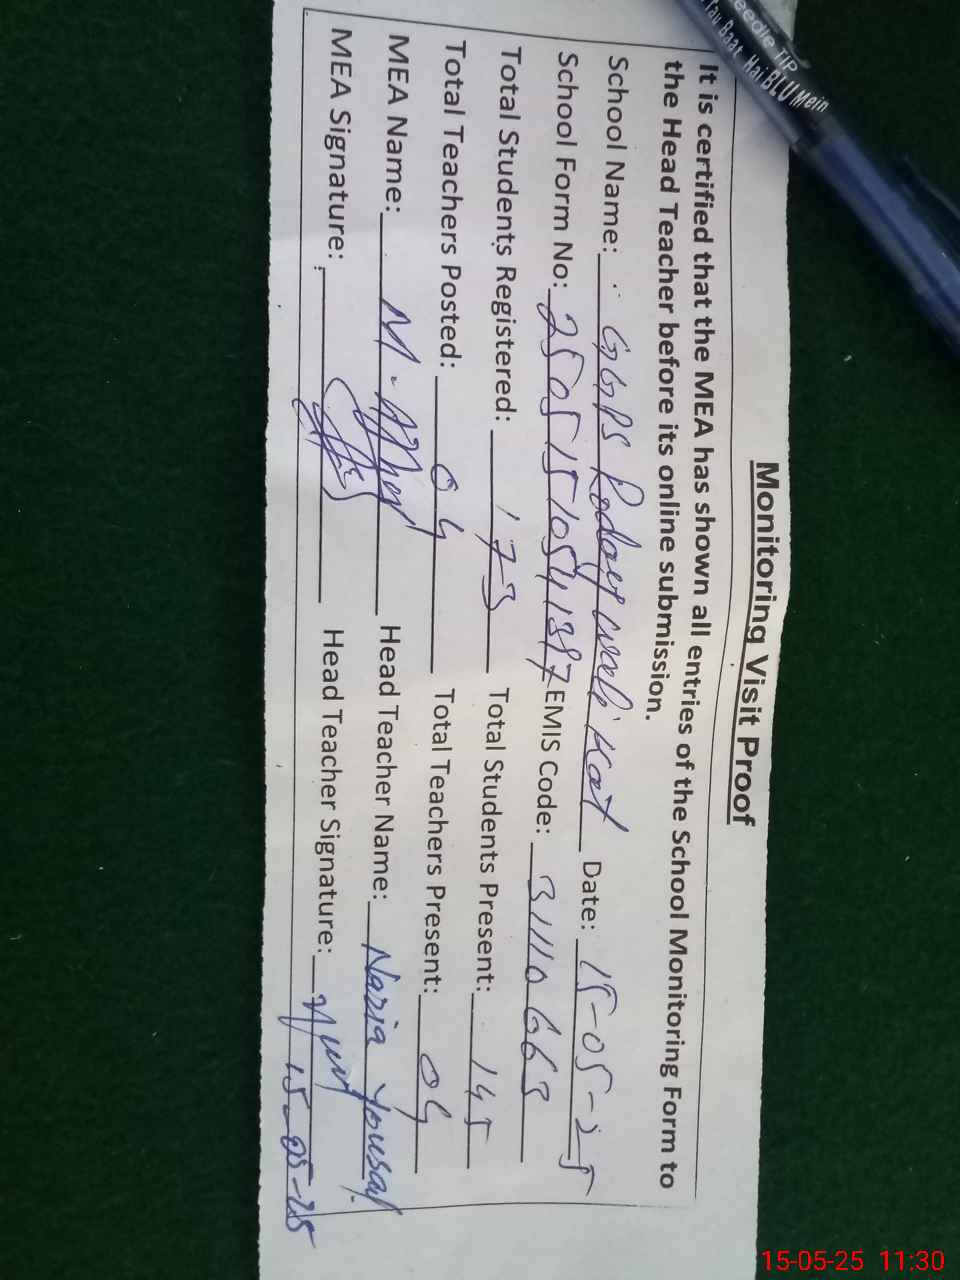 Monitoring Visit Proof
It is certified that the MEA has shown all entries of the School Monitoring Form to
the Head Teacher before its online submission.
School Name: GGPS wali Kot Date: 15-05-25
School Form No: 25051510541387 EMIS Code: 31110663
Total Students Registered: 173 Total Students Present: 145
Total Teachers Posted: 04 Total Teachers Present: 04
MEA Name: M. Head Teacher Name: Nazia Yousaf
MEA Signature: Head Teacher Signature:
15-05-25
eedle TIP
Tau Baat Hai BLU Mein
15-05-25 11:30